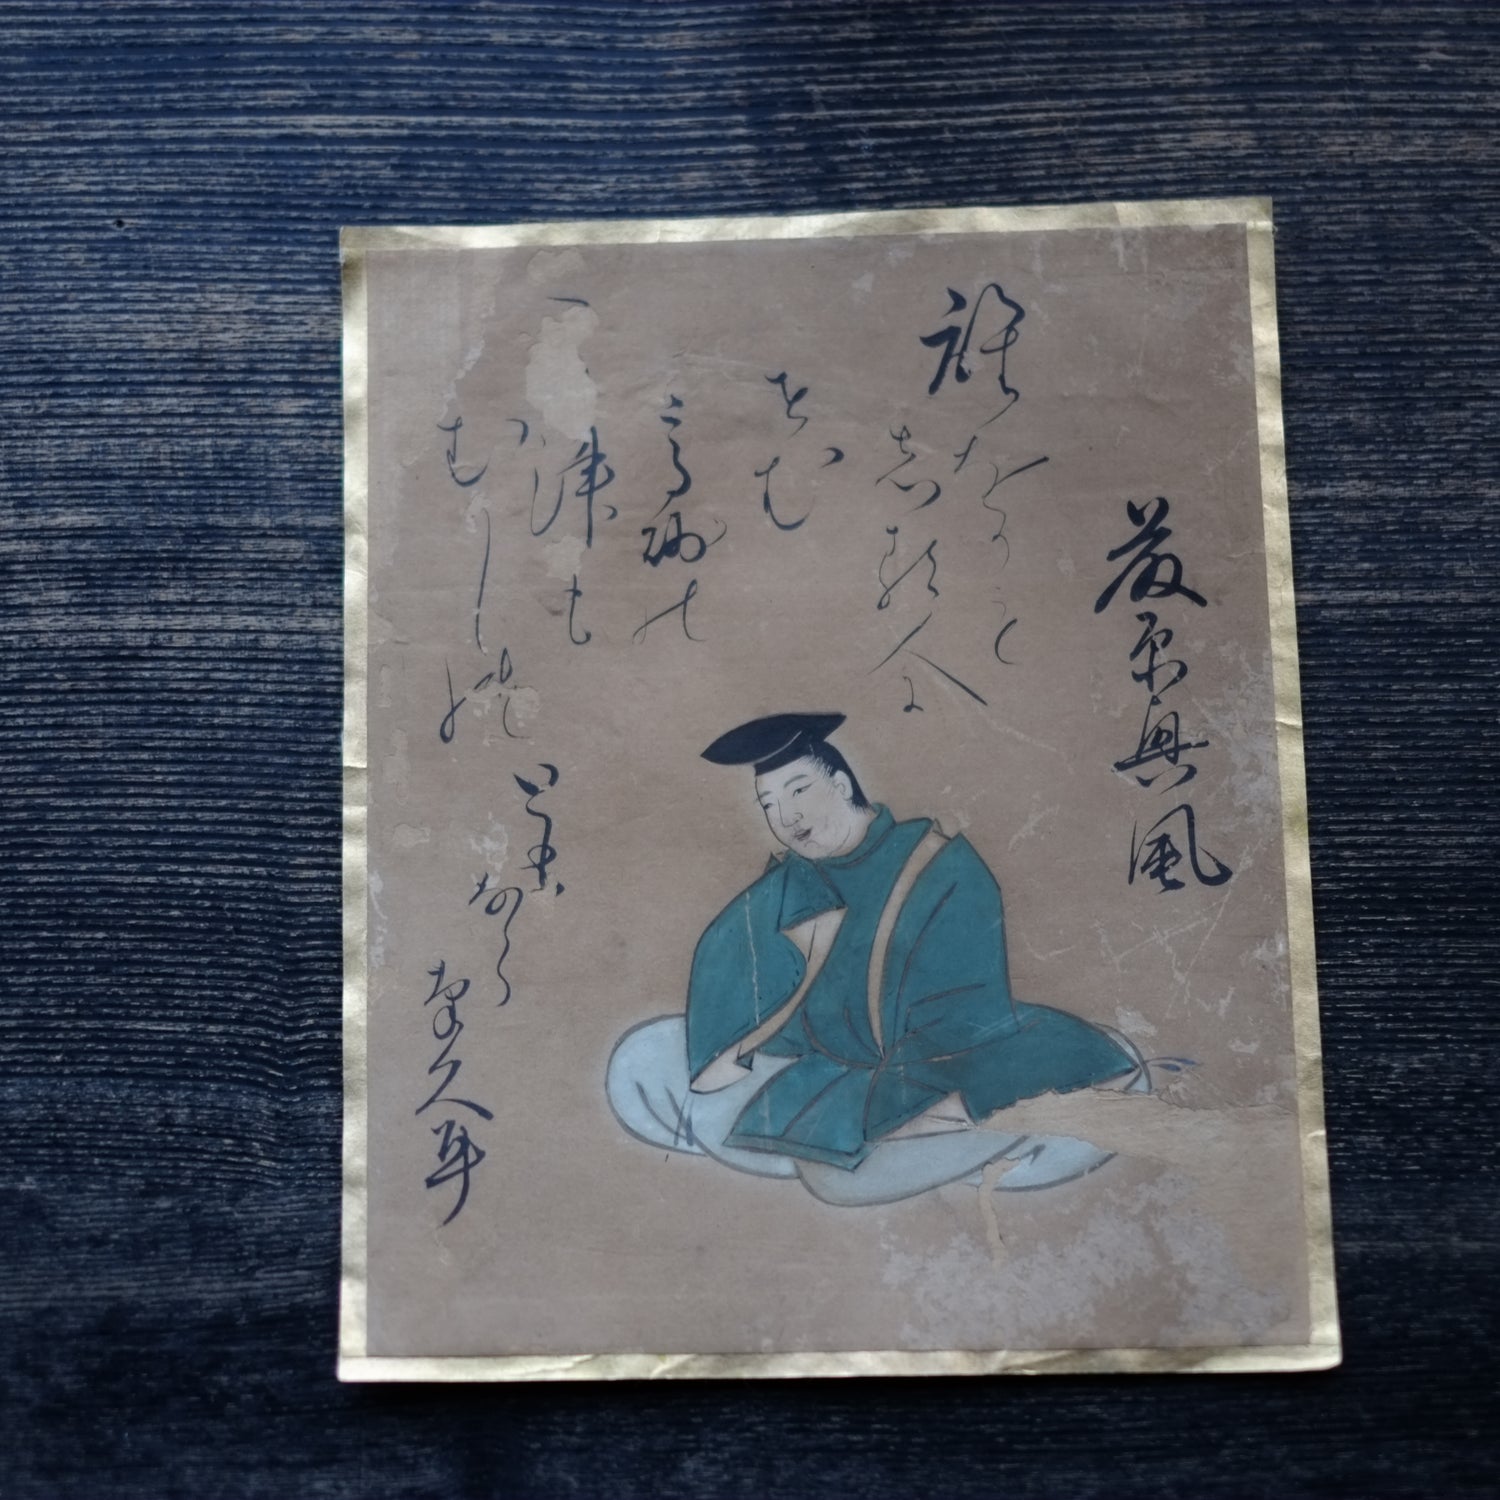 藤原興風
誰をかも
志る人に
せむ
高砂の
松も
むかしの
とも
なら
なくに